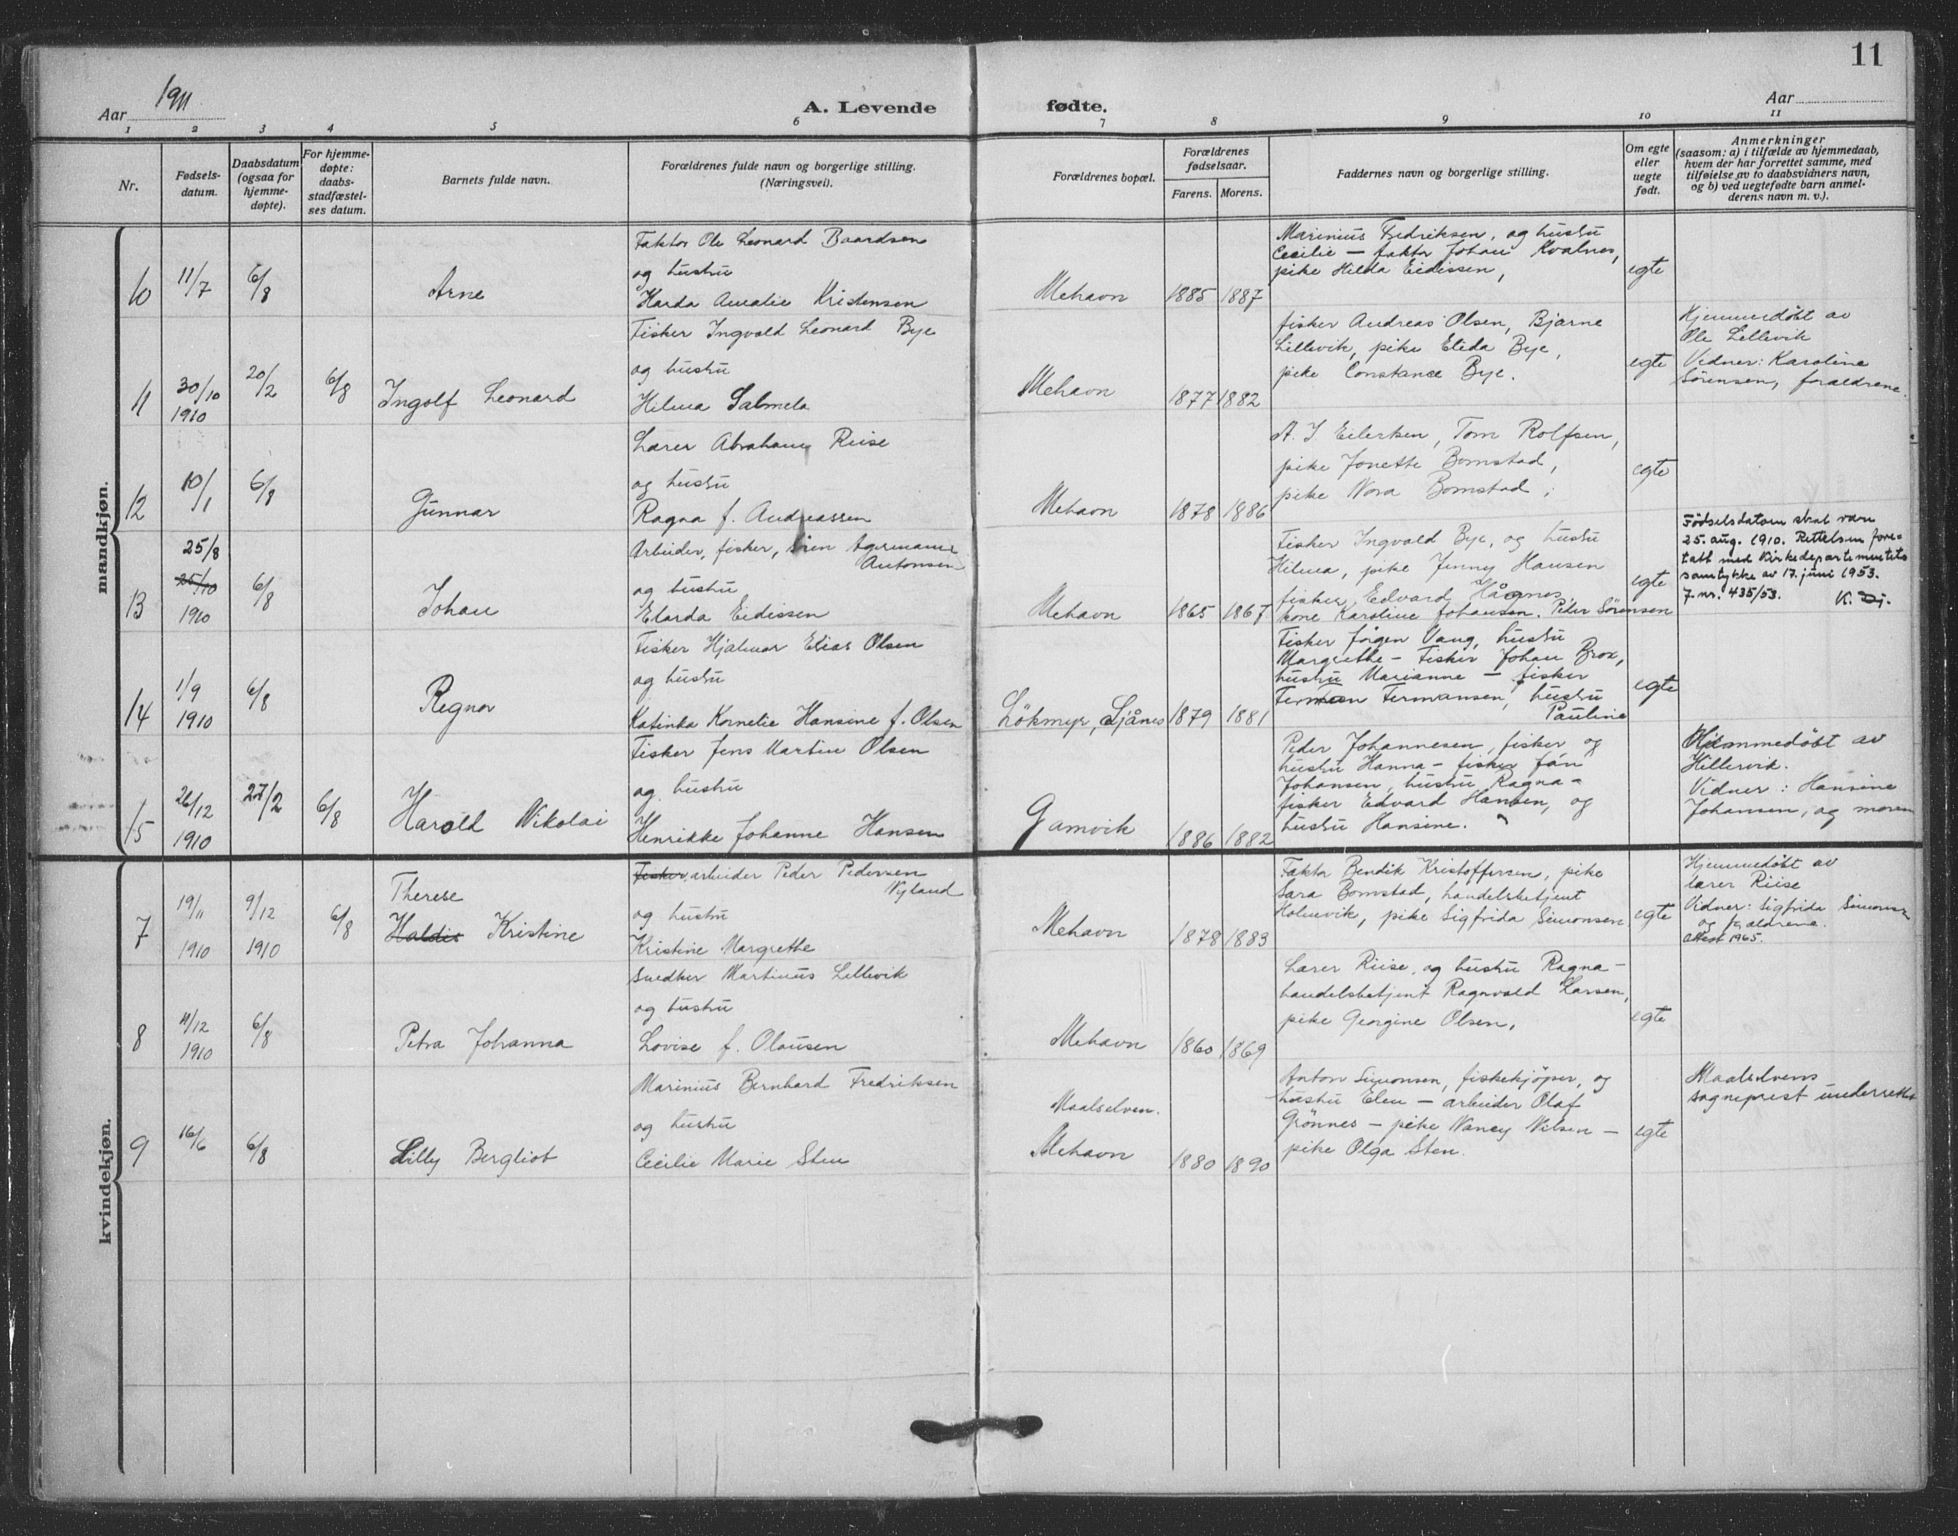 11
Aar 1911
A. Levende fødte.
Aar
1 2 3 4 5 6 7 8 9 10 11
Nr.
Fødsels-
datum.
Daabsdatum
(ogsaa for
hjemme-
døpte).
For hjemme-
døpte:
daabs-
stadfæstel-
ses datum.
Barnets fulde navn.
Forældrenes fulde navn og borgerlige stilling.
(Næringsvei).
Forældrenes bopæl.
Forældrenes
fødselsaar.
Farens. Morens.
Faddernes navn og borgerlige stilling.
Om egte
eller
uegte
født.
Anmerkninger
(saasom: a) i tilfælde av hjemmedaab,
hvem der har forrettet samme, med
tilføielse av to daabsvidners navn,
og b) ved uegtefødte barn anmel-
derens navn m. v.).
mandkjøn.
10 11/7 6/8 Arne
Faktor Ole Leonard Baardsen
og hustru
Harda Amalie Kristensen
Mehavn 1885 1887
Marinius Fredriksen, og hustru
Cecilie — faktor Johan Kvalnes,
pike Hilda Eidissen,
egte
11 30/10 1910 20/2 6/8 Ingolf Leonard
Fisker Ingvald Leonard Bye
og hustru
Hilma Salmela
Mehavn 1877 1882
fisker Andreas Olsen, Bjarne
Lillevik, pike Elida Bye,
pike Constance Bye.
egte
Hjemmedøbt av
Ole Lillevik
Vidner: Karoline
Sørensen, forældrene.
12 10/1 6/8 Gunnar
Lærer Abraham Riise
og hustru
Ragna f. Andreassen
Mehavn 1878 1886
A. J. Eilertsen, Tom Rolfsen,
pike Jonette Bomstad,
pike Nora Bomstad;
egte
13 25/8 25/10 1910 6/8 Johan
Arbeider, fisker,
Antonsen
og hustru
Elarda Eidissen
Mehavn 1865 1867
Fisker Ingvald Bye, og hustru
Hilma, pike Jenny Hansen
fisker Edvard
kone Karoline Johansen. Peder Sørensen
egte
Fødselsdatoen skal være
25. aug. 1910. Rettelsen fore-
tatt med Kirkedepartementets
samtykke av 17. juni 1953.
J. nr. 435/53. K. Dj.
14 1/9 1910 6/8 Regnor
Fisker Hjalmar Elias Olsen
og hustru
Katinka Kornelie Hansine f. Olsen
Løkmyr, Sjånes 1879 1881
Fisker Jørgen Vang, hustru
Margrethe — Fisker Johan Brox,
hustru Marianne — fisker
Ferman Fermansen, hustru
Pauline
egte
15 26/12 1910 27/2 6/8 Harald Nikolai
Fisker Jens Martin Olsen
og hustru
Henrikke Johanne Hansen
Gamvik 1886 1882
Peder Johannesen, fisker og
hustru Hanna — fisker
Johansen, hustru Ragna —
fisker Edvard Hansen, og
hustru Hansine.
Hjemmedøbt av
Hillervid.
Vidner: Hansine
Johansen, og moren
kvindekjøn.
7 19/11 1910 9/12 1910 6/8
Therese
Haldis Kristine
Fisker, arbeider Peder Pedersen
Nyland
og hustru
Kristine Margrethe
Mehavn 1878 1883
Faktor Bendik Kristoffersen, pike
Sara Bomstad, handelsbetjent
Holmvik, pike Sigfrida Simonsen
egte
Hjemmedøbt av
lærer Riise
Vidner: Sigfrida Simonsen
og forældrene.
Attest 1965.
8 4/12 1910 6/8 Petra Johanna
Snedker Martinus Lillevik
og hustru
Lovise f. Olausen
Mehavn 1860 1869
Lærer Riise, og hustru Ragna —
handelsbetjent Ragnvald Larsen,
pike Georgine Olsen,
egte
9 16/6 6/8 Lilly Bergliot
Marinius Bernhard Fredriksen
og hustru
Cecilie Marie Sten
Maalselven.
Mehavn 1880 1890
Anton Simonsen, fiskekjøper, og
hustru Elen — arbeider Olaf
Grønnes — pike Nancy Nilsen —
pike Olga Sten.
egte
Maalselvens
sogneprest underrettet